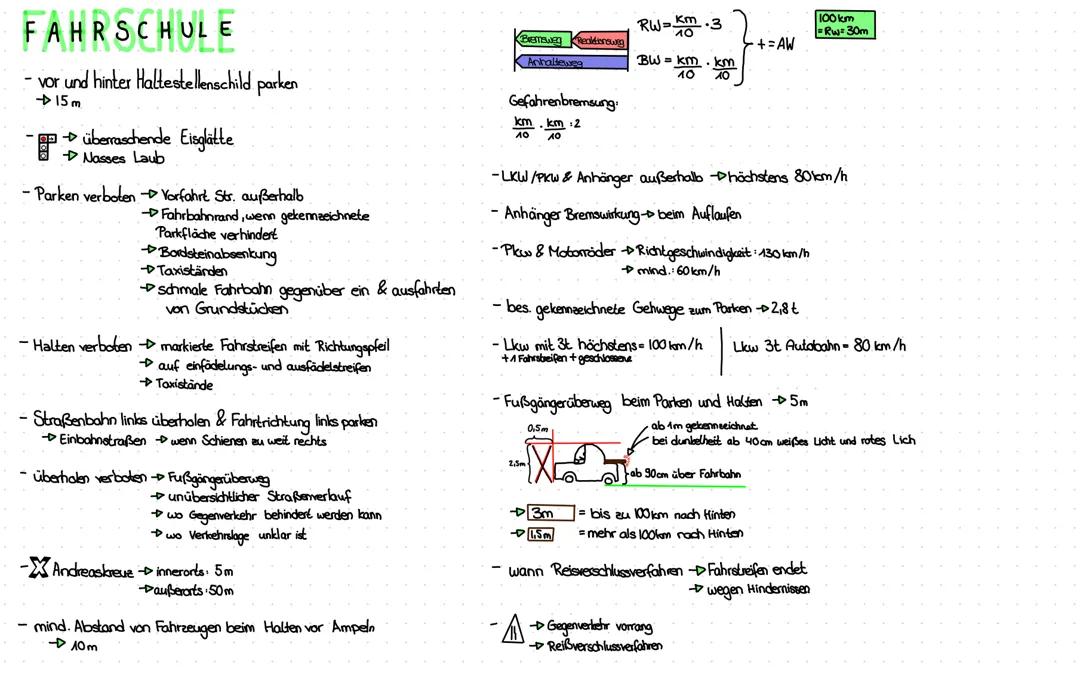 FAHRSCHULE
- vor und hinter Haltestellenschild parken
→ 15m
- → überraschende Eisglätte
→ Nasses Laub
- Parken verboten → Vorfahrt Str. außerhalb
→ Fahrbahnrand, wenn gekennzeichnete
Parkfläche verhindert
→ Bordsteinabsenkung
→ Taxiständen
→ schmale Fahrbahn gegenüber ein & ausfahrten
von Grundstücken
- Halten verboten → markierte Fahrstreifen mit Richtungspfeil
→ auf einfädelungs- und ausfädelstreifen
→ Taxistände
- Straßenbahn links überholen & Fahrtrichtung links parken
→ Einbahnstraßen → wenn Schienen zu weit rechts
- überholen verboten → Fußgängerüberweg
→ unübersichtlicher Straßenverlauf
→ wo Gegenverkehr behindert werden kann
→ wo Verkehrslage unklar ist
- Andreaskreuz → innerorts: 5m
→ außerorts: 50m
- mind. Abstand von Fahrzeugen beim Halten vor Ampeln
→ 10m
Bremsweg Reaktionsweg
Anhalteweg
RW = km/10 · 3
BW = km/10 · km/10
+ = AW
100 km
= RW = 30m
Gefahrenbremsung:
km/10 · km/10 : 2
- LKW/PKW & Anhänger außerhalb → höchstens 80 km/h
- Anhänger Bremswirkung → beim Auflaufen
- Pkw & Motorräder → Richtgeschwindigkeit: 130 km/h
→ mind.: 60 km/h
- bes. gekennzeichnete Gehwege zum Parken → 2,8 t
- Lkw mit 3t höchstens = 100 km/h | Lkw 3t Autobahn = 80 km/h
+ 1 Fahrstreifen + geschlossene
- Fußgängerüberweg beim Parken und Halten → 5m
0,5m
2,5m
ab 1m gekennzeichnet
bei dunkelheit ab 40cm weißes Licht und rotes Lich
ab 90cm über Fahrbahn
→ 3m = bis zu 100km nach Hinten
→ 1,5m = mehr als 100km nach Hinten
- wann Reisverschlussverfahren → Fahrstreifen endet
→ wegen Hindernissen
- → Gegenverkehr vorrang
→ Reißverschlussverfahren